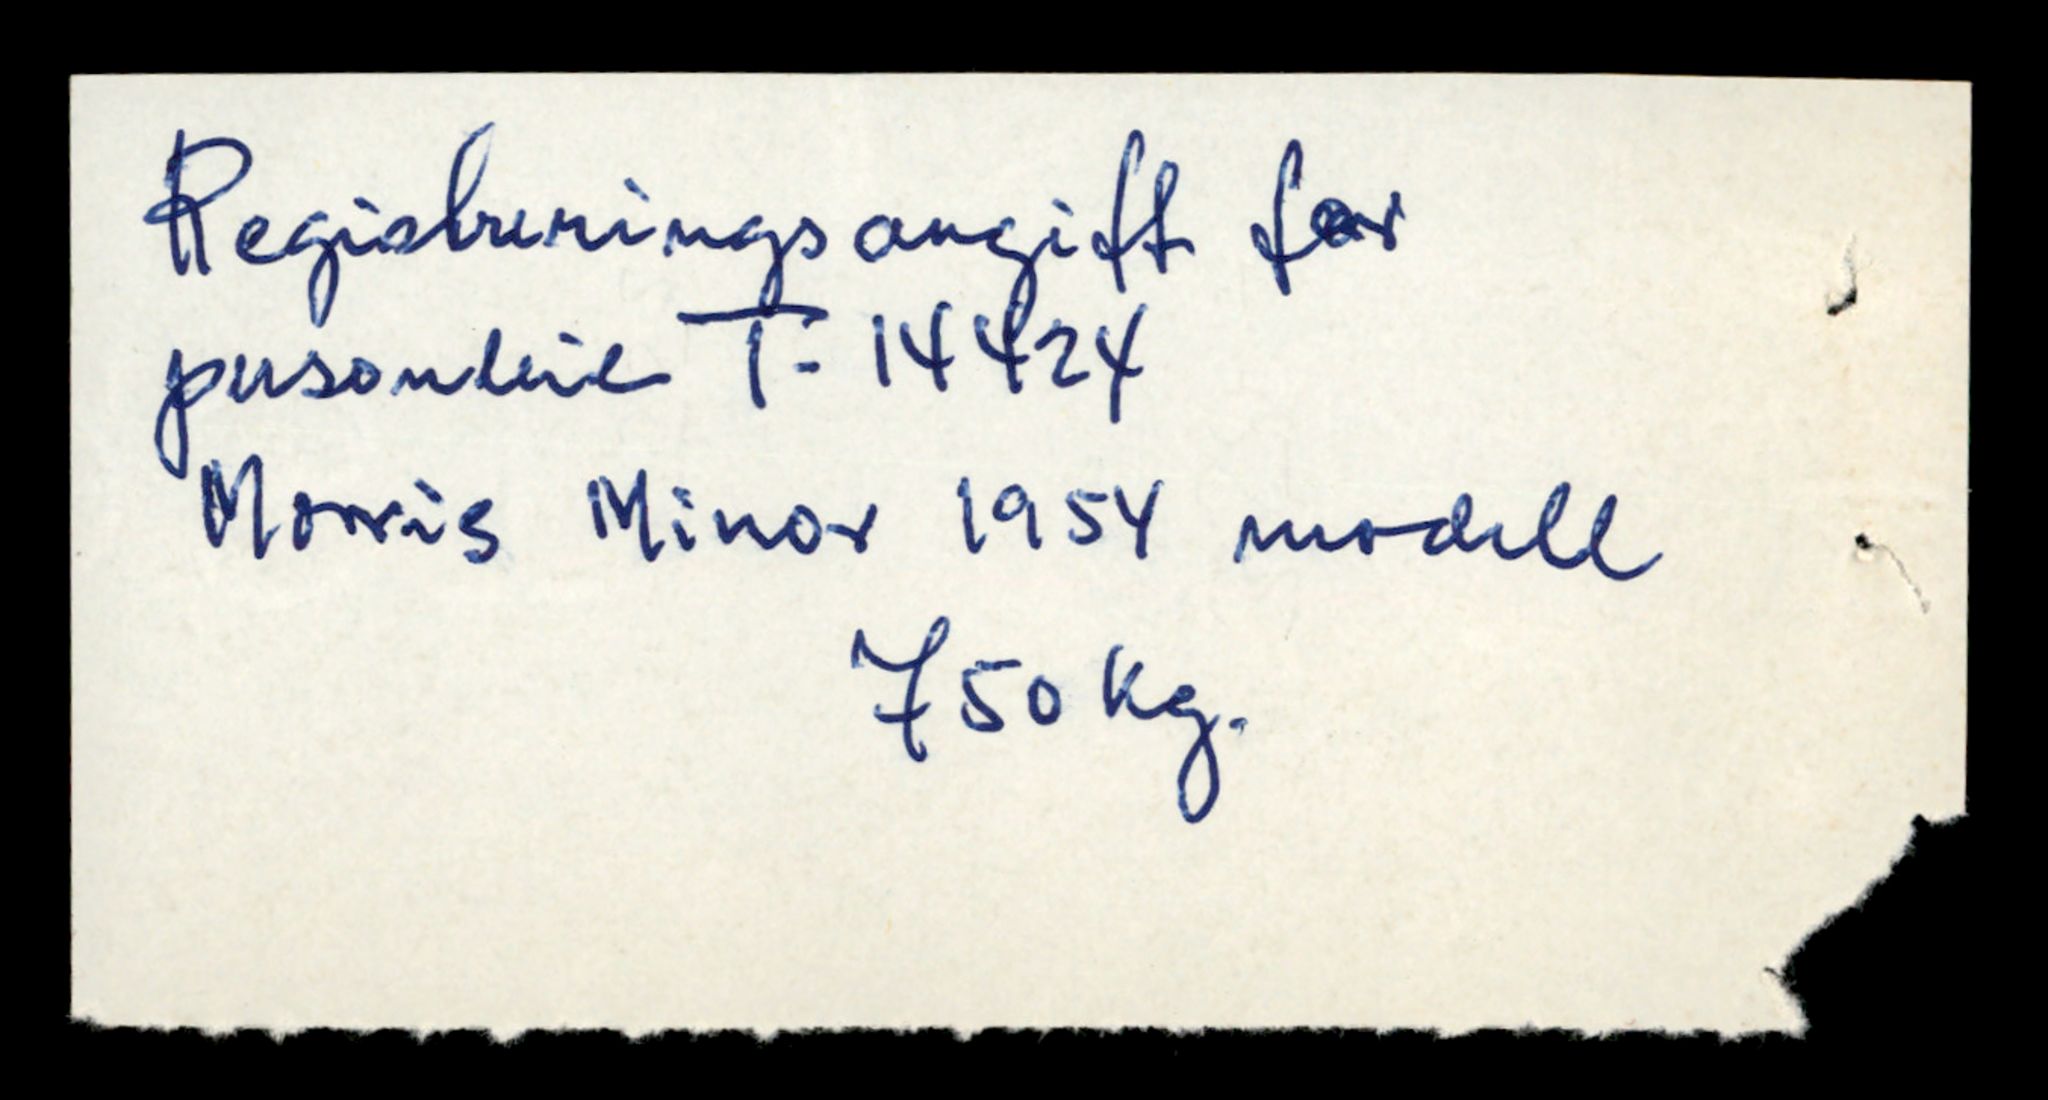 Registreringsavgift for
personbil T-14424
Morris Minor 1954 modell
750 kg.